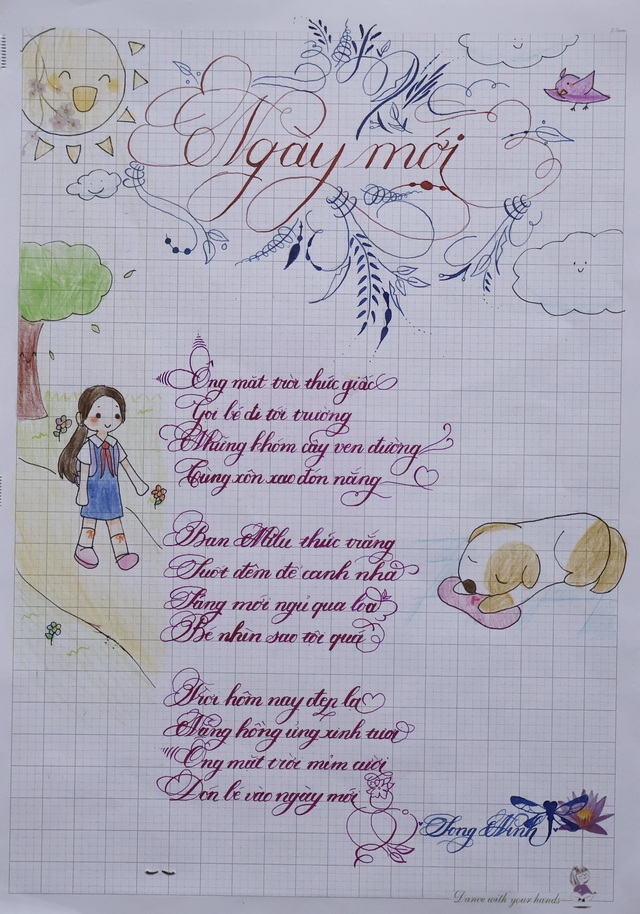 Ngày mới
Ông mặt trời thức giấc
Gọi bé đi tới trường
Những khóm cây ven đường
Cùng xôn xao đón nắng
Bạn Milu thức trắng
Suốt đêm để canh nhà
Sáng mới ngủ qua loa
Bé nhìn sao tội quá
Trời hôm nay đẹp lạ
Nắng hồng ửng xinh tươi
Ông mặt trời mỉm cười
Đón bé vào ngày mới
Song Ninh
Dance with your hands